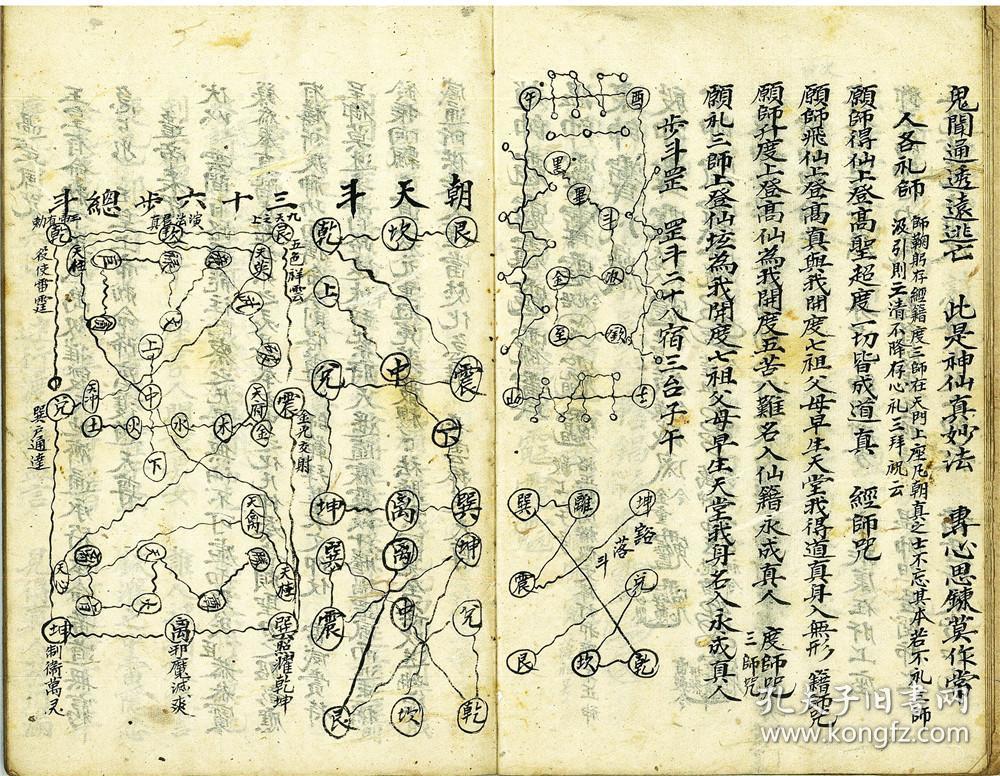 鬼聞通透遠逃亡 此是神仙真妙法 專心思鍊莫作常
人各礼師 師鞠躬存經籍度三師在天門上座凡朝真之士不忘其本若不礼三師
汲引則三清不降存心礼三拜祝云
願師得仙上登高聖超度一切皆成道真 經師咒
願師飛仙上登高真與我開度七祖父母早生天堂我得道真身入無形 籍師咒
願師升度上登高仙為我開度五苦八難名入仙籍永成真人 度師咒
三師咒
願礼三師上登仙坛為我開度七祖父母早生天堂我身名入永成真人
步斗罡 罡斗二十八宿三台子午
酉
午
斗
畢
金
至
巽 離 坤
震 兌
艮 坎 乾
豁
落
斗
朝天斗
艮 坎 乾
上
震 中 兌
下
巽 離 坤
坤 離 巽
兌 中 震
乾 坎 艮
三十六步總斗
九天之上
演法
五色祥雲
役使雷霆
天柱
天英
上
中
下
土 火 水 木 金
天府
震
兌
金光交射
巽户通達
天禽
天心
天柱
坤
離
巽
制衛萬灵
邪魔滅爽
照耀乾坤
孔夫子旧书网
www.kongfz.com